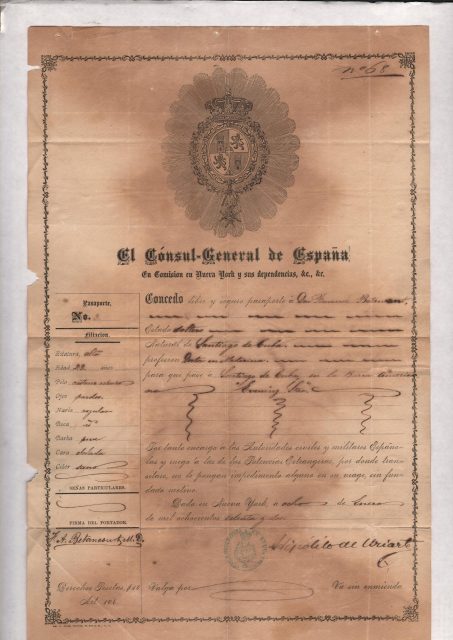 nº 68
El Cónsul-General de España
En Comision en Nueva York y sus dependencias, &c., &c.
Pasaporte.
No.
Filiacion.
Estatura, alto
Edad 22 años
Pelo castaño oscuro
Ojos pardos
Nariz regular
Boca id
Barba
Cara
Color sano
SEÑAS PARTICULARES.
FIRMA DEL PORTADOR.
F. A. Betancourt, M. D.
Concedo libre y seguro pasaporte á Don
Estado soltero
Natural de Santiago de Cuba
profesion
para que pase á Santiago de Cuba, en la Barca
Por tanto encargo á las Autoridades civiles y militares Españo-
las y ruego á las de las Potencias Extrangeras, por donde tran-
sitare, no le pongan impedimento alguno en su viage sin fun-
dado motivo.
Dado en Nueva York, á ocho de Enero
de mil ochocientos setenta y dos
Hipólito de Uriarte
Derechos Pesetas,
Art.
Valga por
Va sin enmienda